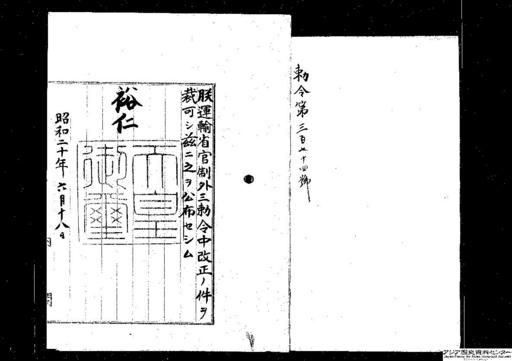 勅令第三百七十四號
朕運輸省官制外三勅令中改正ノ件ヲ
裁可シ茲ニ之ヲ公布セシム
裕仁
天皇御璽
昭和二十年六月十八日
内閣
アジア歴史資料センター